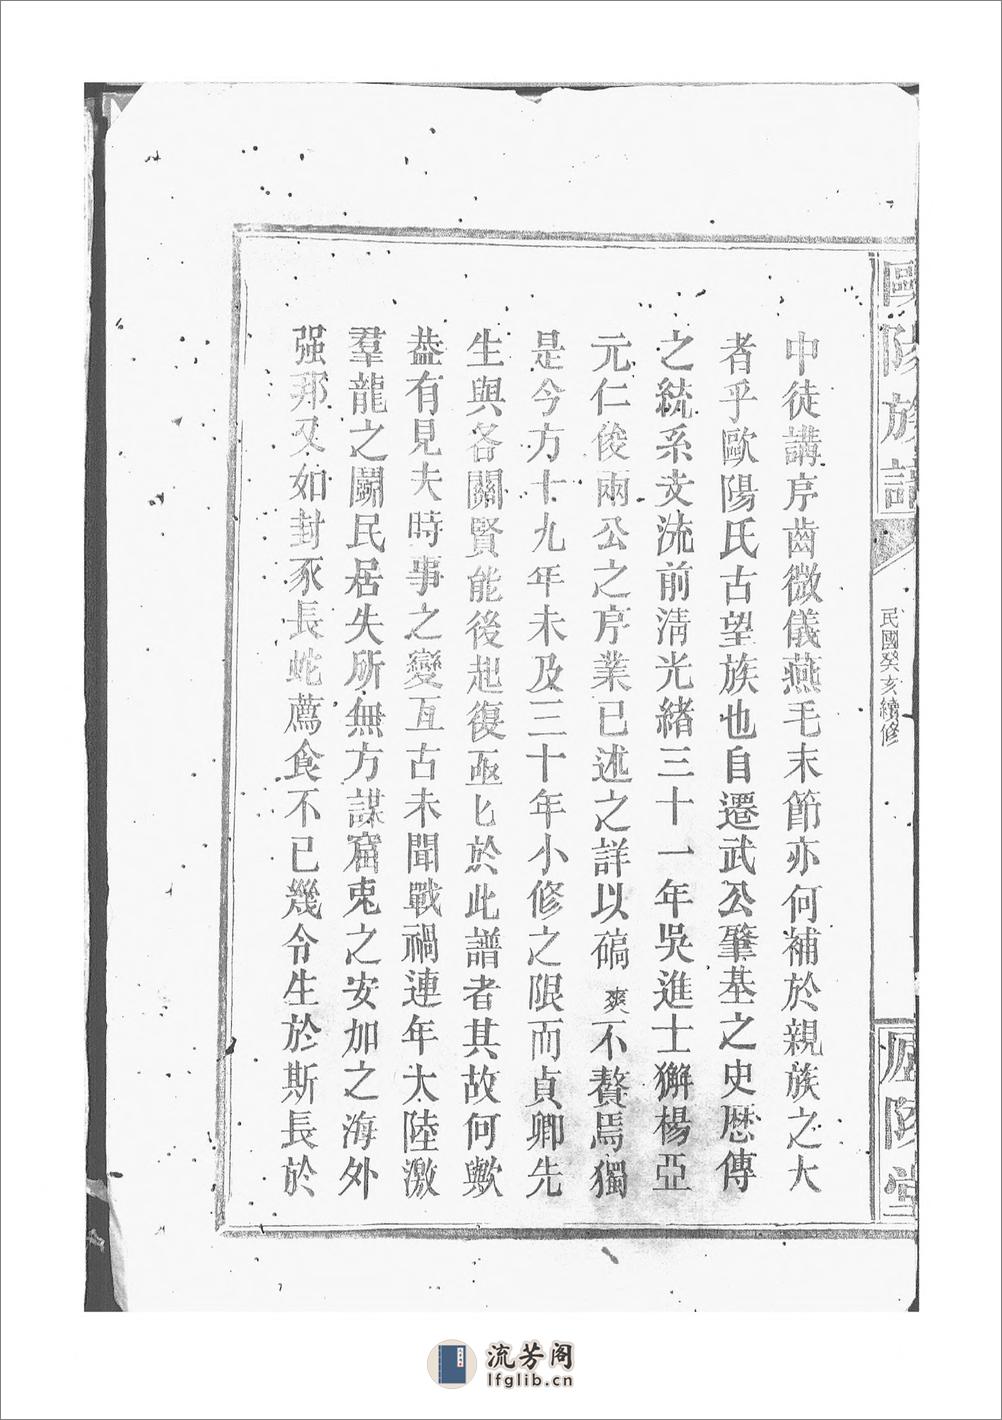 歐陽族譜
民國癸亥續修
中徒講序齒微儀燕毛末節亦何補於親族之大
者乎歐陽氏古望族也自遷武公肇基之史歷傳
之統系支流前清光緒三十一年吳進士獬楊亞
元仁俊兩公之序業已述之詳以碻爽不贅焉獨
是今方十九年未及三十年小修之限而貞卿先
生與各關賢能後起復亟亟於此譜者其故何歟
葢有見夫時事之變亙古未聞戰禍連年大陸激
羣龍之鬭民居失所無方謀窟兎之安加之海外
强邪又如封豕長蛇薦食不已幾令生於斯長於
流芳阁
lfglib.cn